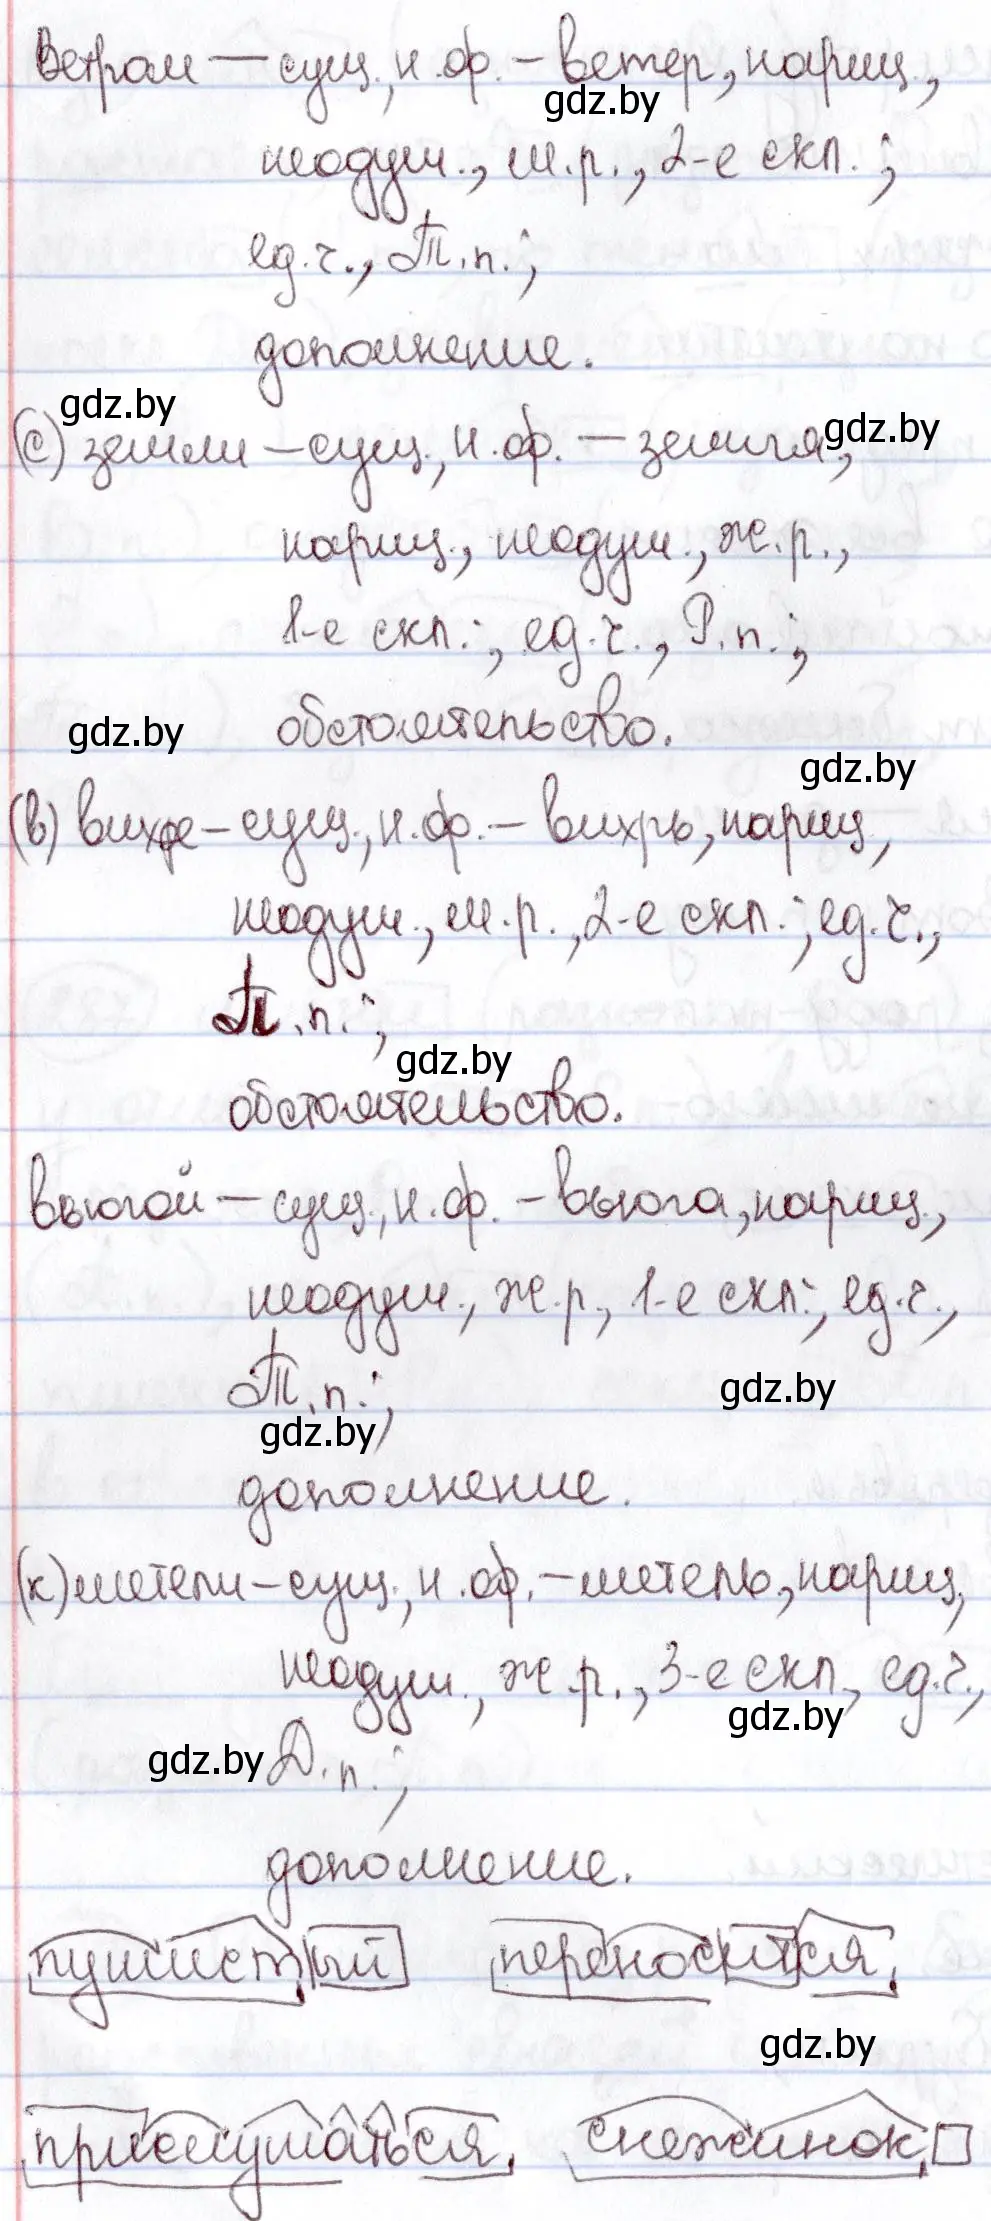 Ветром — сущ., н.ф. – ветер, нариц.,
gdz.by
неодуш., м.р., 2-е скл.;
ед.ч., Т.п.;
дополнение.
gdz.by
gdz.by
(с) земли – сущ., н.ф. – земля,
нариц., неодуш., ж.р.,
1-е скл.; ед.ч., Р.п.;
обстоятельство.
gdz.by
gdz.by
(в) вихре – сущ., н.ф. – вихрь, нариц.,
неодуш., м.р., 2-е скл.; ед.ч.,
П.п.;
gdz.by
обстоятельство.
вьюгой — сущ., н.ф. – вьюга, нариц.,
неодуш., ж.р., 1-е скл.; ед.ч.,
Т.п.;
gdz.by
gdz.by
дополнение.
(к) метели – сущ., н.ф. – метель, нариц.,
неодуш., ж.р., 3-е скл., ед.ч.,
gdz.by
gdz.by
Д.п.;
дополнение.
пушистый, переносится,
gdz.by
прислушаться, снежинок,